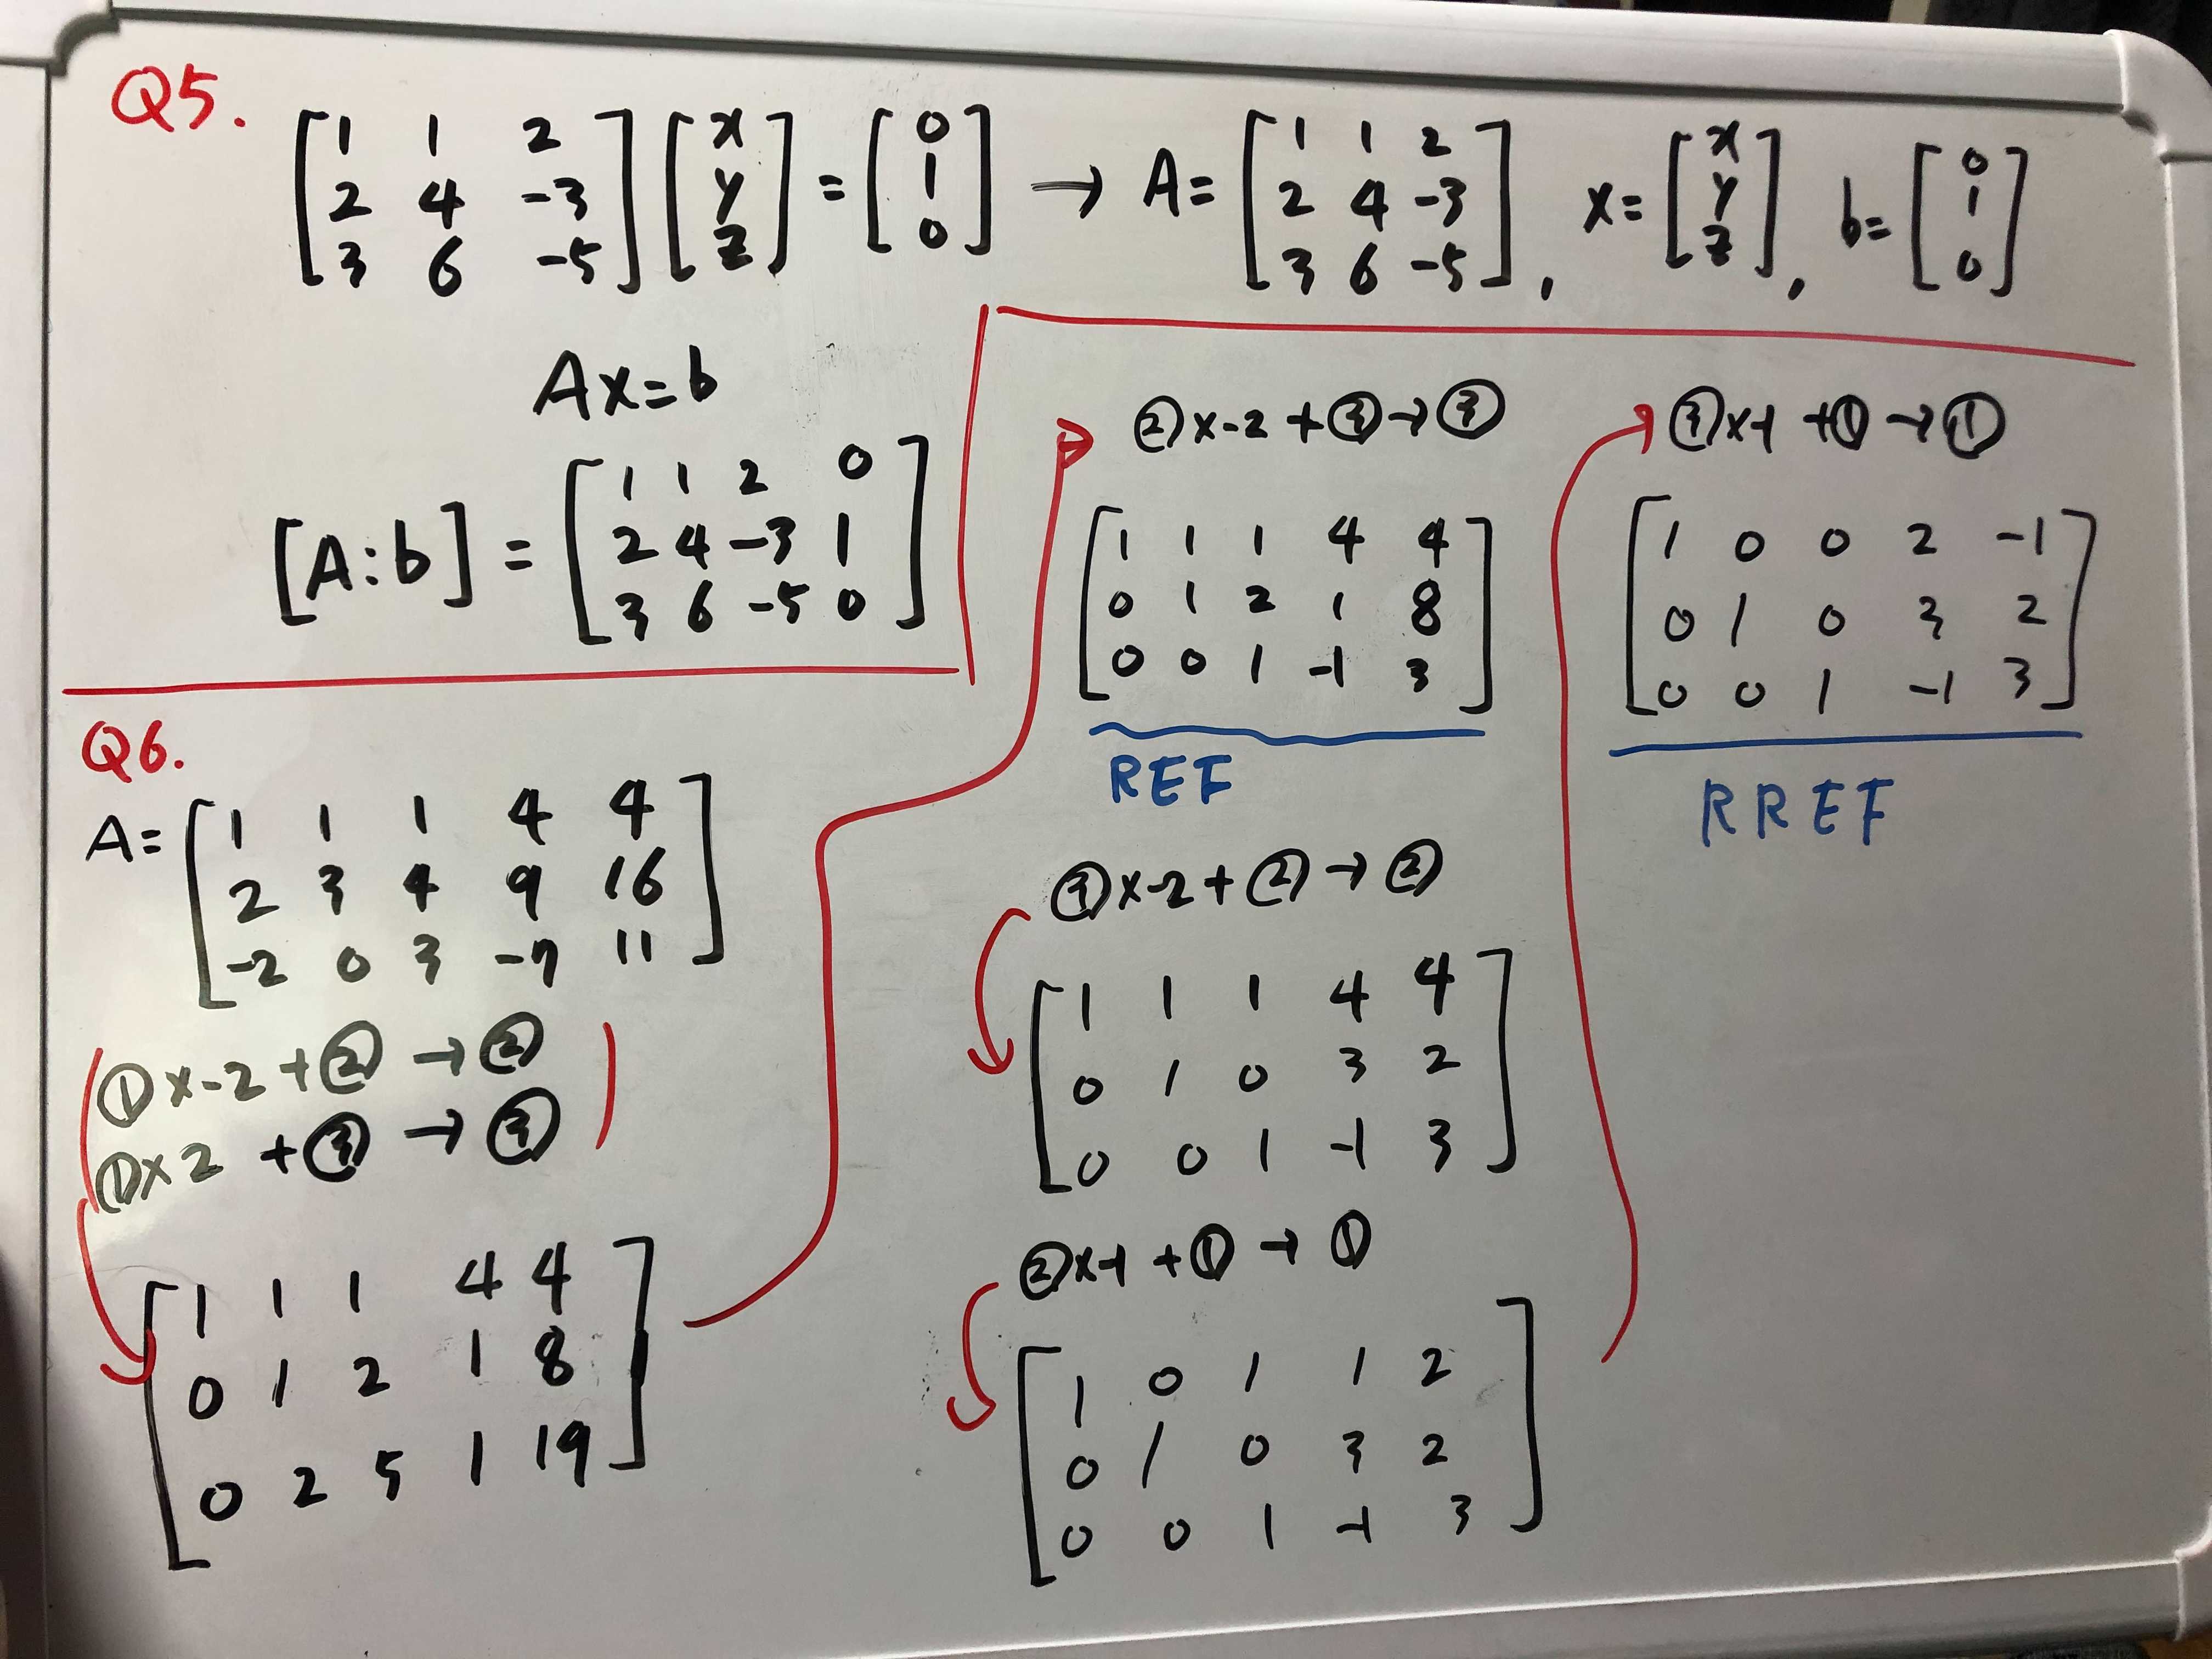 Q5.
[1 1 2; 2 4 -3; 3 6 -5] [x; y; z] = [0; 1; 0] → A= [1 1 2; 2 4 -3; 3 6 -5], x= [x; y; z], b= [0; 1; 0]
Ax=b
[A:b] = [1 1 2 0; 2 4 -3 1; 3 6 -5 0]
Q6.
A= [1 1 1 4 4; 2 3 4 9 16; -2 0 3 -7 11]
①x-2+② → ②
①x2 +③ → ③
[1 1 1 4 4; 0 1 2 1 8; 0 2 5 1 19]
②x-2+③→③
[1 1 1 4 4; 0 1 2 1 8; 0 0 1 -1 3]
REF
③x-2+②→②
[1 1 1 4 4; 0 1 0 3 2; 0 0 1 -1 3]
②x-1 +① → ①
[1 0 1 1 2; 0 1 0 3 2; 0 0 1 -1 3]
③x-1 +① → ①
[1 0 0 2 -1; 0 1 0 3 2; 0 0 1 -1 3]
RREF